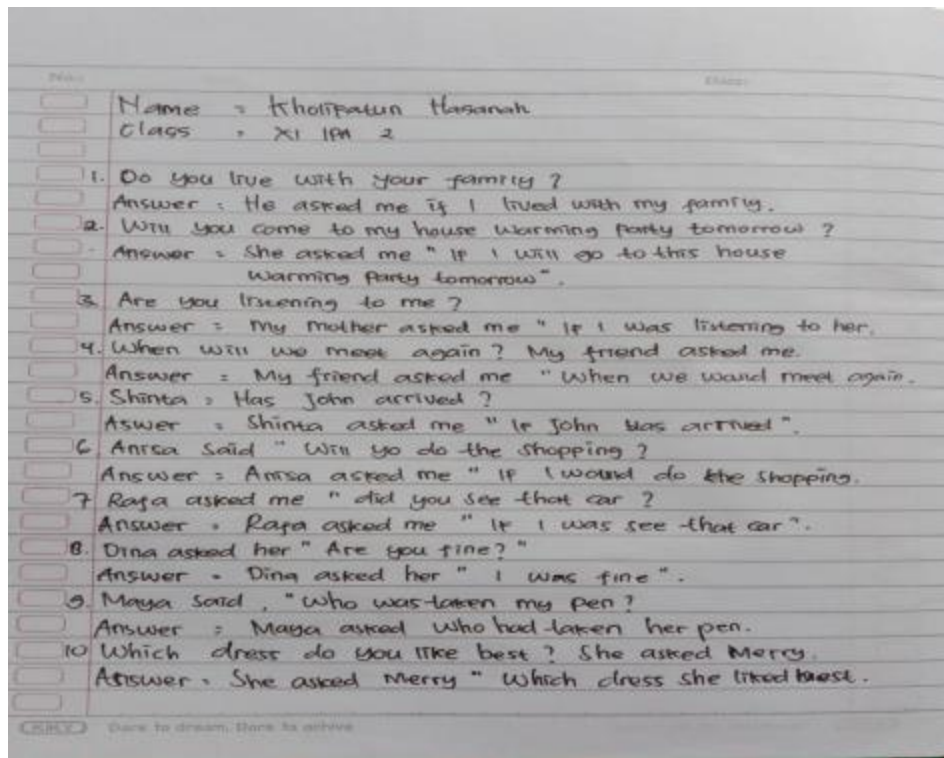 No:
Date:
Name : Kholifatun Hasanah
Class : XI IPA 2
1. Do you live with your family ?
Answer : He asked me if I lived with my family.
2. Will you come to my house warming party tomorrow ?
Answer : She asked me " If I will go to this house
warming party tomorrow".
3. Are you listening to me ?
Answer : My mother asked me " If I was listening to her.
4. When will we meet again ? My friend asked me.
Answer : My friend asked me " When we would meet again.
5. Shinta : Has John arrived ?
Aswer : Shinta asked me " If John has arrived ".
6 Anisa Said " Will yo do the shopping ?
Answer : Anisa asked me " If I would do the shopping.
7 Rafa asked me " did you see that car ?
Answer : Rafa asked me " If I was see that car".
8. Dina asked her " Are you fine? "
Answer : Dina asked her " I was fine ".
9. Maya Said , "Who was taken my pen ?
Answer : Maya asked who had taken her pen.
10 Which dress do you like best ? She asked Merry.
Answer : She asked Merry " Which dress she liked best.
KIKY Dare to dream. Dare to achive